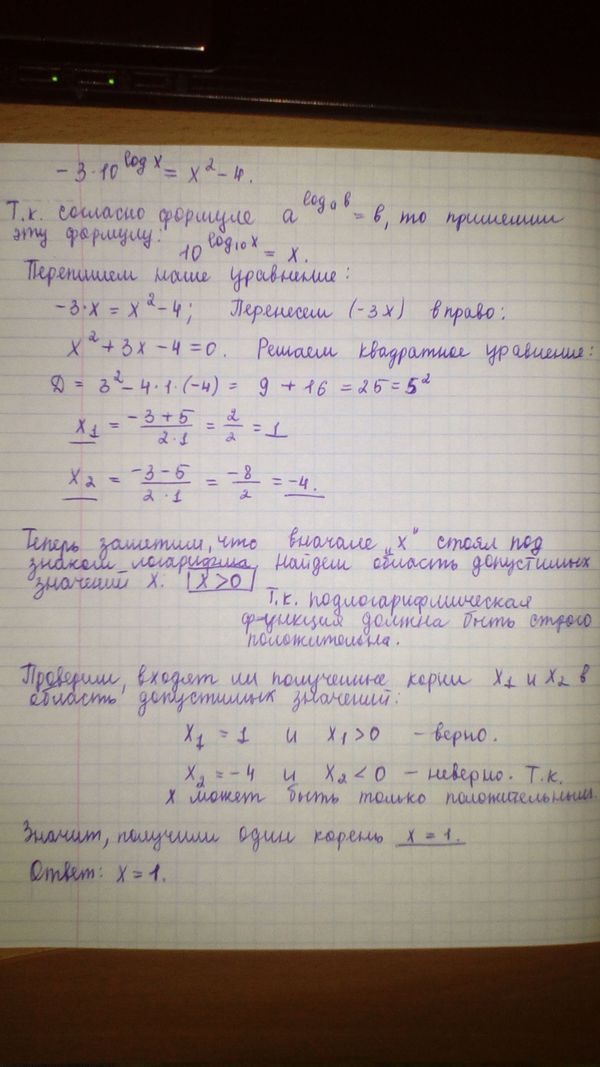 -3·10^log x = x² - 4.
Т.к. согласно формуле a^log_a b = b, то применим
эту формулу:
10^log₁₀x = x.
Перепишем наше уравнение:
-3·x = x² - 4; Перенесем (-3x) вправо:
x² + 3x - 4 = 0. Решаем квадратное уравнение:
Д = 3² - 4·1·(-4) = 9 + 16 = 25 = 5²
x₁ = (-3+5)/(2·1) = 2/2 = 1
x₂ = (-3-5)/(2·1) = -8/2 = -4.
Теперь заметим, что вначале „x" стоял под
знаком логарифма. Найдем область допустимых
значений X. x>0
Т.к. подлогарифмическая
ф-ункция должна быть строго
положительна.
Проверим, входят ли полученные корни x₁ и x₂ в
область допустимых значений:
x₁ = 1 и x₁>0 - верно.
x₂ = -4 и x₂<0 - неверно. Т.к.
x может быть только положительным.
Значит, получили один корень x = 1.
Ответ: x = 1.